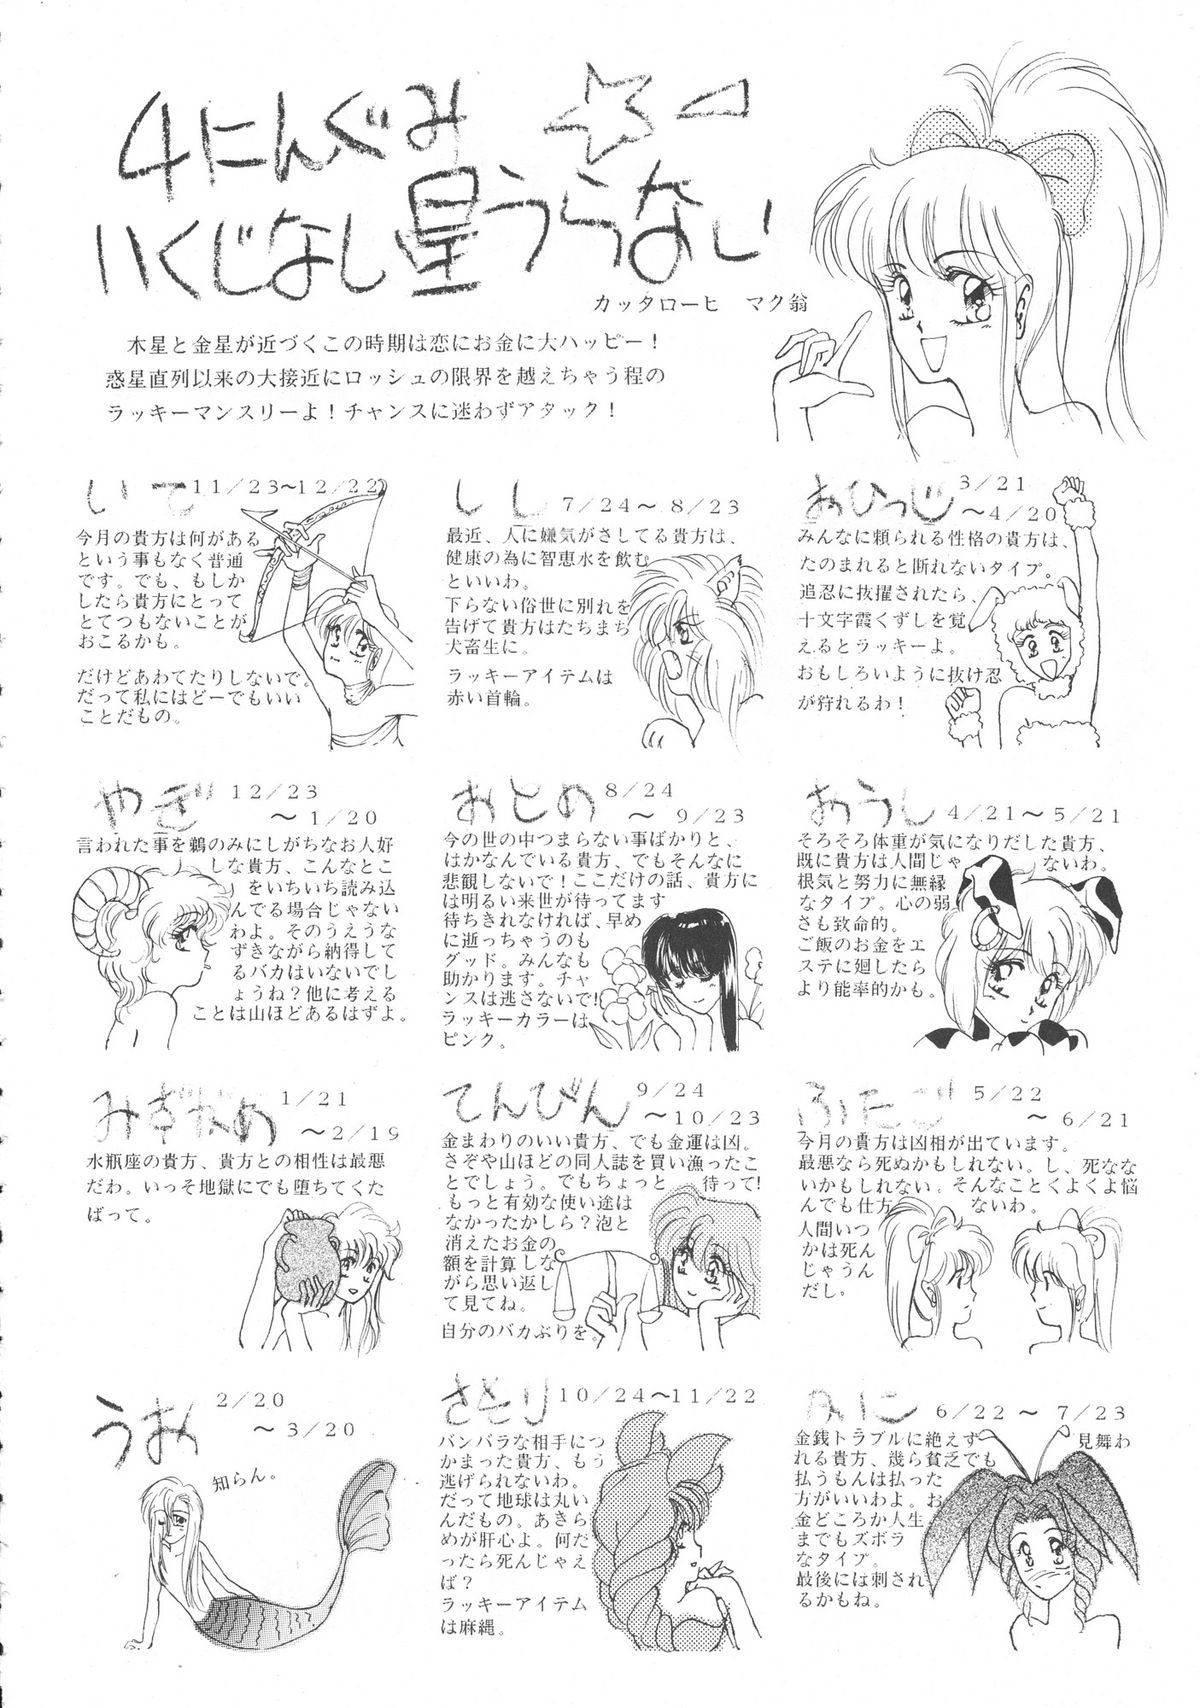 4にんぐみ
いくじなし星うらない
カッタローヒ　マク翁
木星と金星が近づくこの時期は恋にお金に大ハッピー！
惑星直列以来の大接近にロッシュの限界を越えちゃう程の
ラッキーマンスリーよ！チャンスに迷わずアタック！
いて 11/23〜12/22
今月の貴方は何がある
という事もなく普通
です。でも、もしか
したら貴方にとって
とてつもないことが
おこるかも。
だけどあわてたりしないで。
だって私にはどーでもいい
ことだもの。
しし 7/24〜8/23
最近、人に嫌気がさしてる貴方は、
健康の為に智恵水を飲む
といいわ。
下らない俗世に別れを
告げて貴方はたちまち
犬畜生に。
ラッキーアイテムは
赤い首輪。
おひつじ 3/21
〜4/20
みんなに頼られる性格の貴方は、
たのまれると断れないタイプ。
追忍に抜擢されたら、
十文字霞くずしを覚
えるとラッキーよ。
おもしろいように抜け忍
が狩れるわ！
やぎ 12/23
〜1/20
言われた事を鵜のみにしがちなお人好
しな貴方、こんなとこ
をいちいち読み込
んでる場合じゃない
わよ。そのうえうな
ずきながら納得して
るバカはいないでし
ょうね？他に考える
ことは山ほどあるはずよ。
おとめ 8/24
〜9/23
今の世の中つまらない事ばかりと、
はかなんでいる貴方、でもそんなに
悲観しないで！ここだけの話、貴方に
は明るい来世が待ってます
待ちきれなければ、早め
に逝っちゃうのも
グッド。みんなも
助かります。チャ
ンスは逃さないで！
ラッキーカラーは
ピンク。
おうし 4/21〜5/21
そろそろ体重が気になりだした貴方、
既に貴方は人間じゃ ないわ。
根気と努力に無縁
なタイプ。心の弱
さも致命的。
ご飯のお金をエ
ステに廻したら
より能率的かも。
みずがめ 1/21
〜2/19
水瓶座の貴方、貴方との相性は最悪
だわ。いっそ地獄にでも堕ちてくた
ばって。
てんびん 9/24
〜10/23
金まわりのいい貴方、でも金運は凶。
さぞや山ほどの同人誌を買い漁ったこ
とでしょう。でもちょっと 待って！
もっと有効な使い途は
なかったかしら？泡と
消えたお金の
額を計算しな
がら思い返し
て見てね。
自分のバカぶりを。
ふたご 5/22
〜6/21
今月の貴方は凶相が出ています。
最悪なら死ぬかもしれない。し、死なな
いかもしれない。そんなことくよくよ悩
んでも仕方 ないわ。
人間いつ
かは死ん
じゃうん
だし。
うお 2/20
〜3/20
知らん。
さそり 10/24〜11/22
バンバラな相手につ
かまった貴方、もう
逃げられないわ。
だって地球は丸い
んだもの。あきら
めが肝心よ。何だ
ったら死んじゃえ
ば？
ラッキーアイテム
は麻縄。
かに 6/22〜7/23
金銭トラブルに絶えず 見舞わ
れる貴方、幾ら貧乏でも
払うもんは払った
方がいいわよ。お
金どころか人生
までもズボラ
なタイプ。
最後には刺され
るかもね。